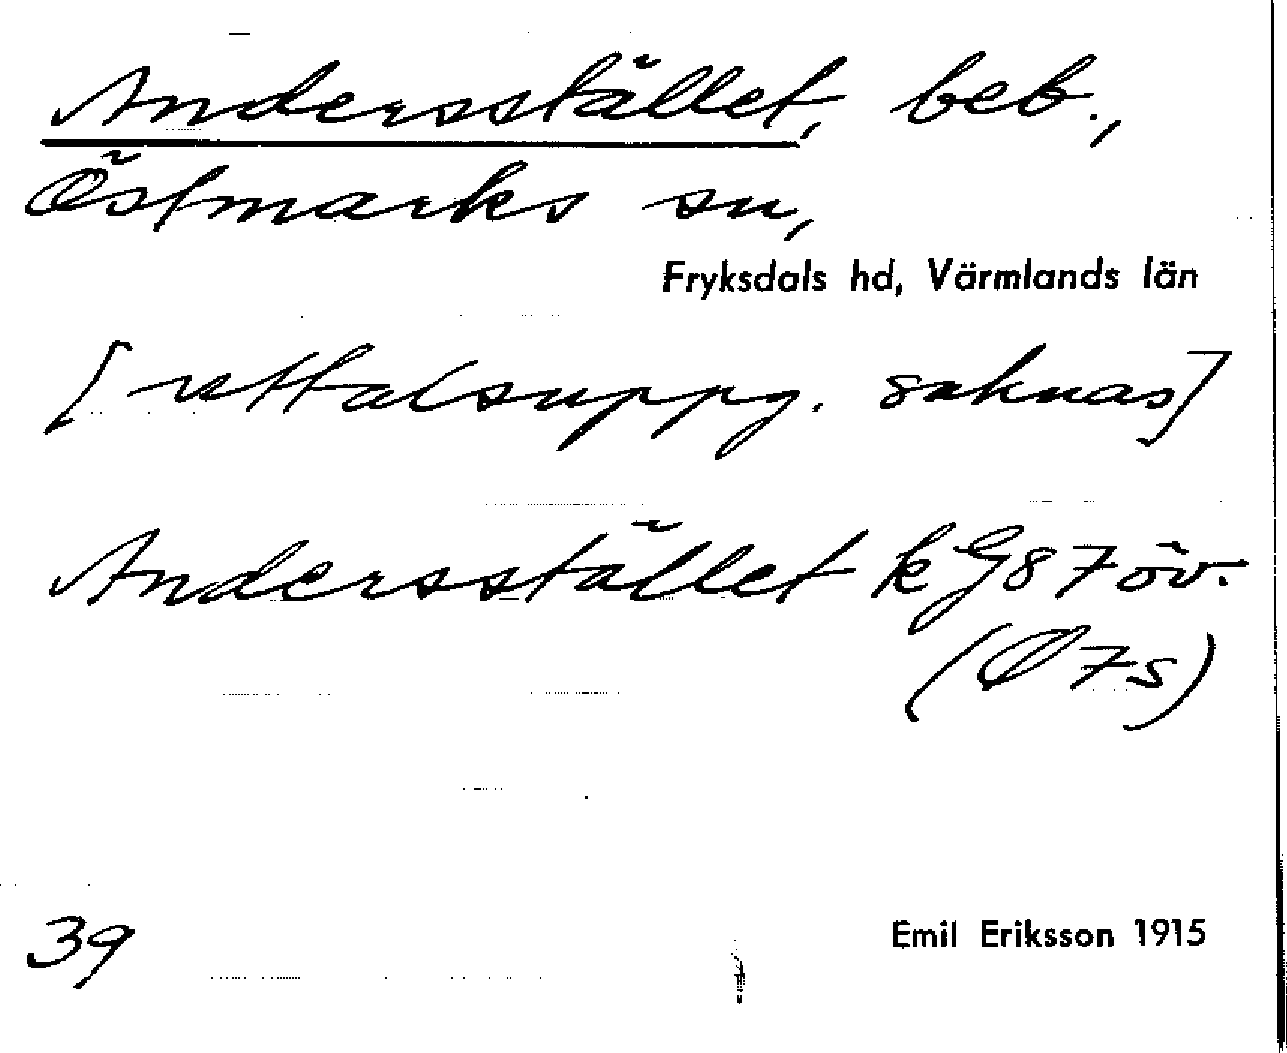 Andersstället, beb.,
Östmarks sn,
Fryksdals hd, Värmlands län
[uttalsuppg. saknas]
Andersstället k G87 öv.
(Ø 7s)
39
Emil Eriksson 1915